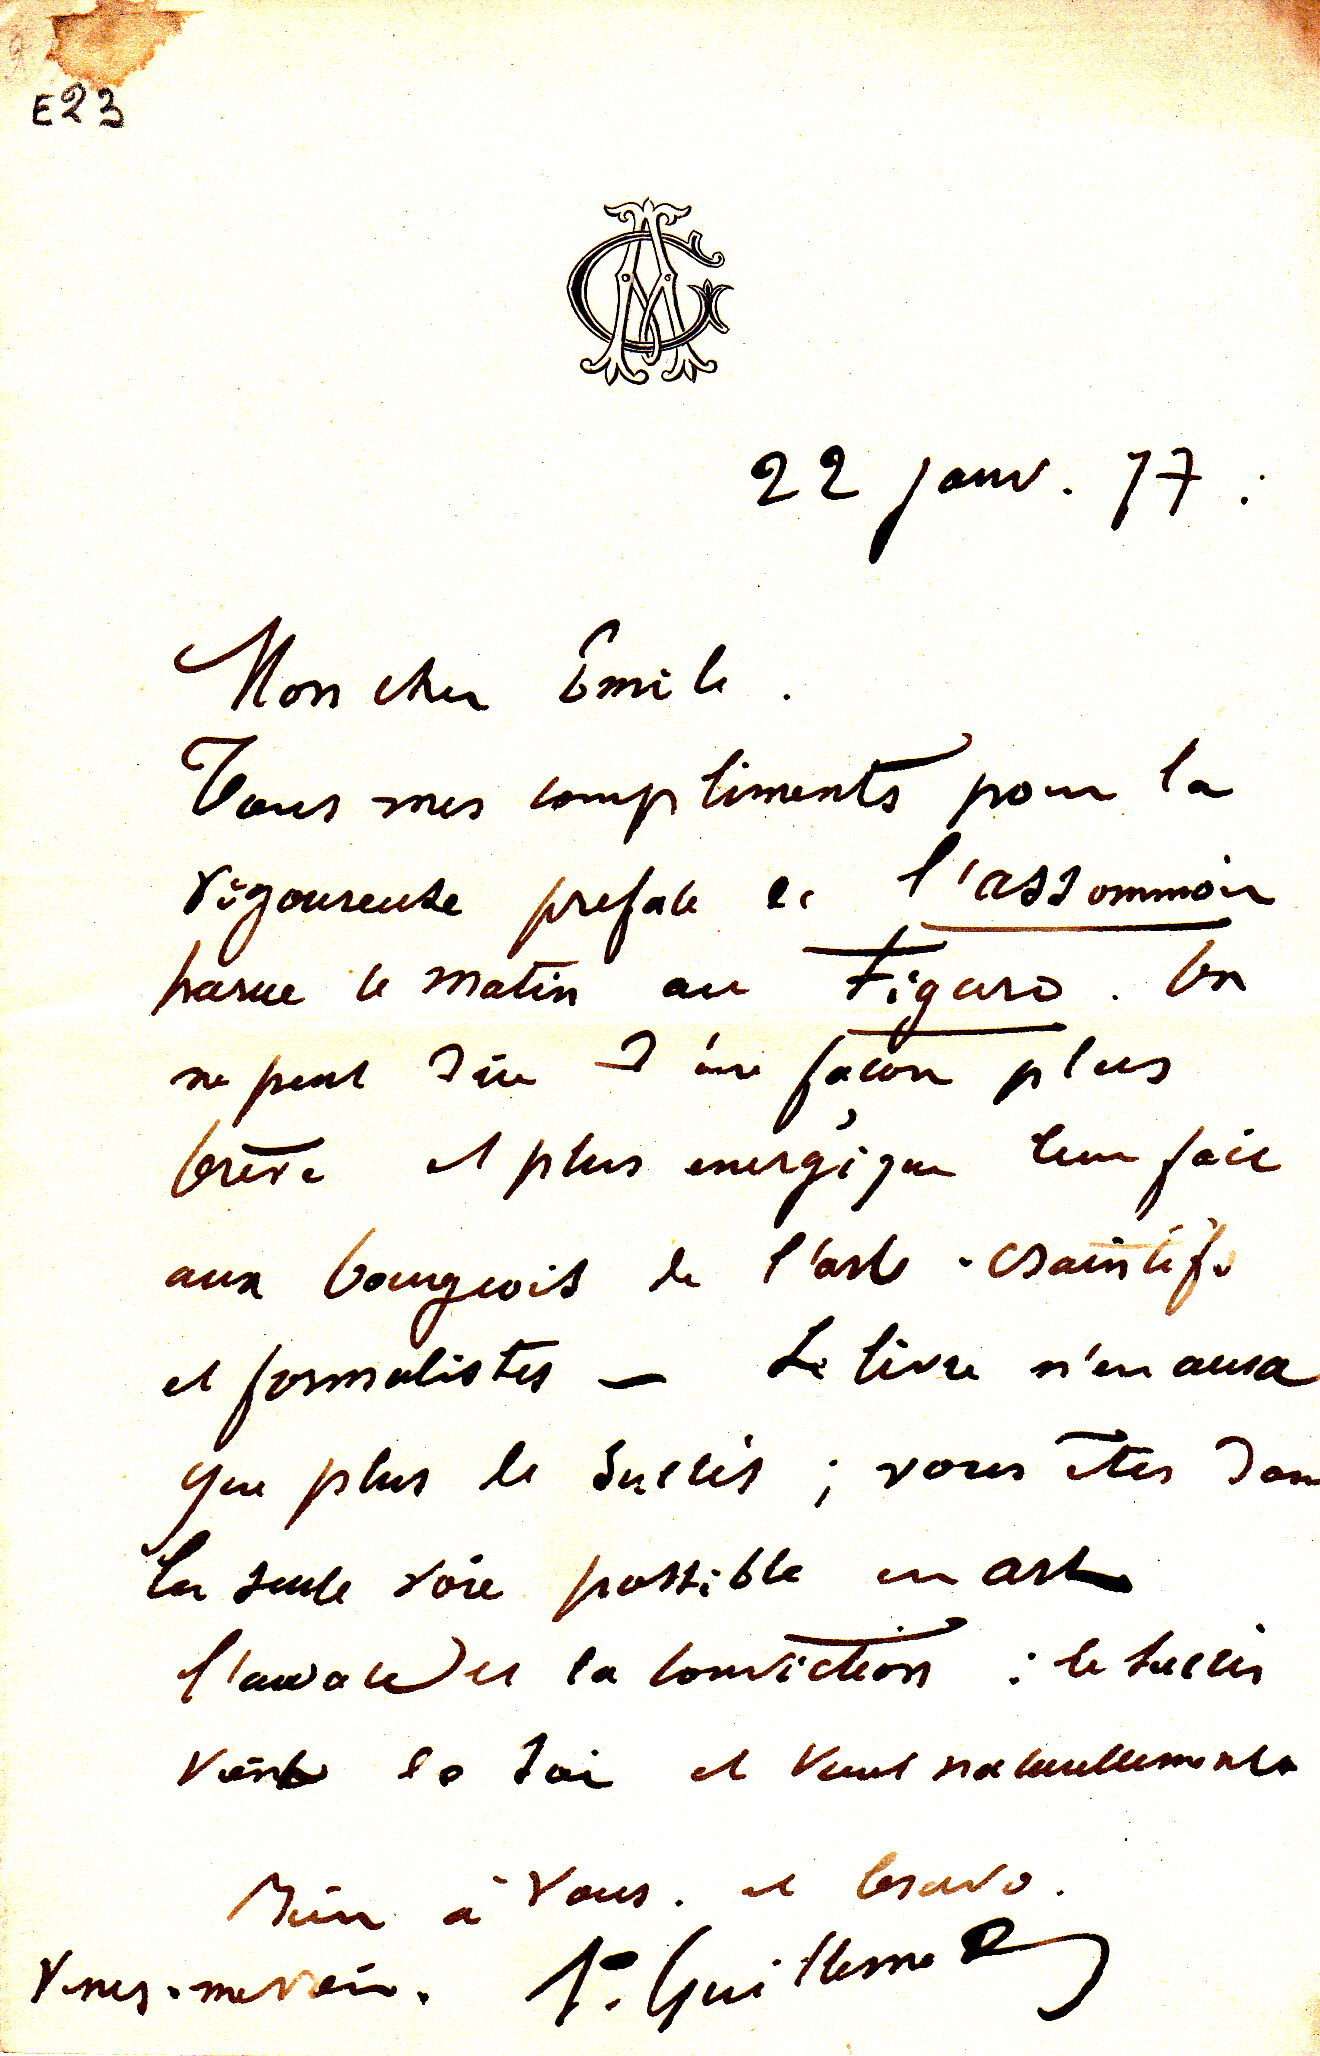 E23
22 janv. 77.
Mon cher Emile.
Tous mes compliments pour la
vigoureuse preface de l'assommoir
parue ce matin au Figaro. On
ne peut dire d'une façon plus
brève et plus energique leur fait
aux bourgeois de l'art - craintifs
et formalistes — Le livre n'en aura
que plus de succès ; vous êtes dans
la seule voie possible en art
l'audace et la conviction : le succès
vient de soi et vient naturellement
Bien à vous. et bravo.
Venez-me voir. A. Guillemet